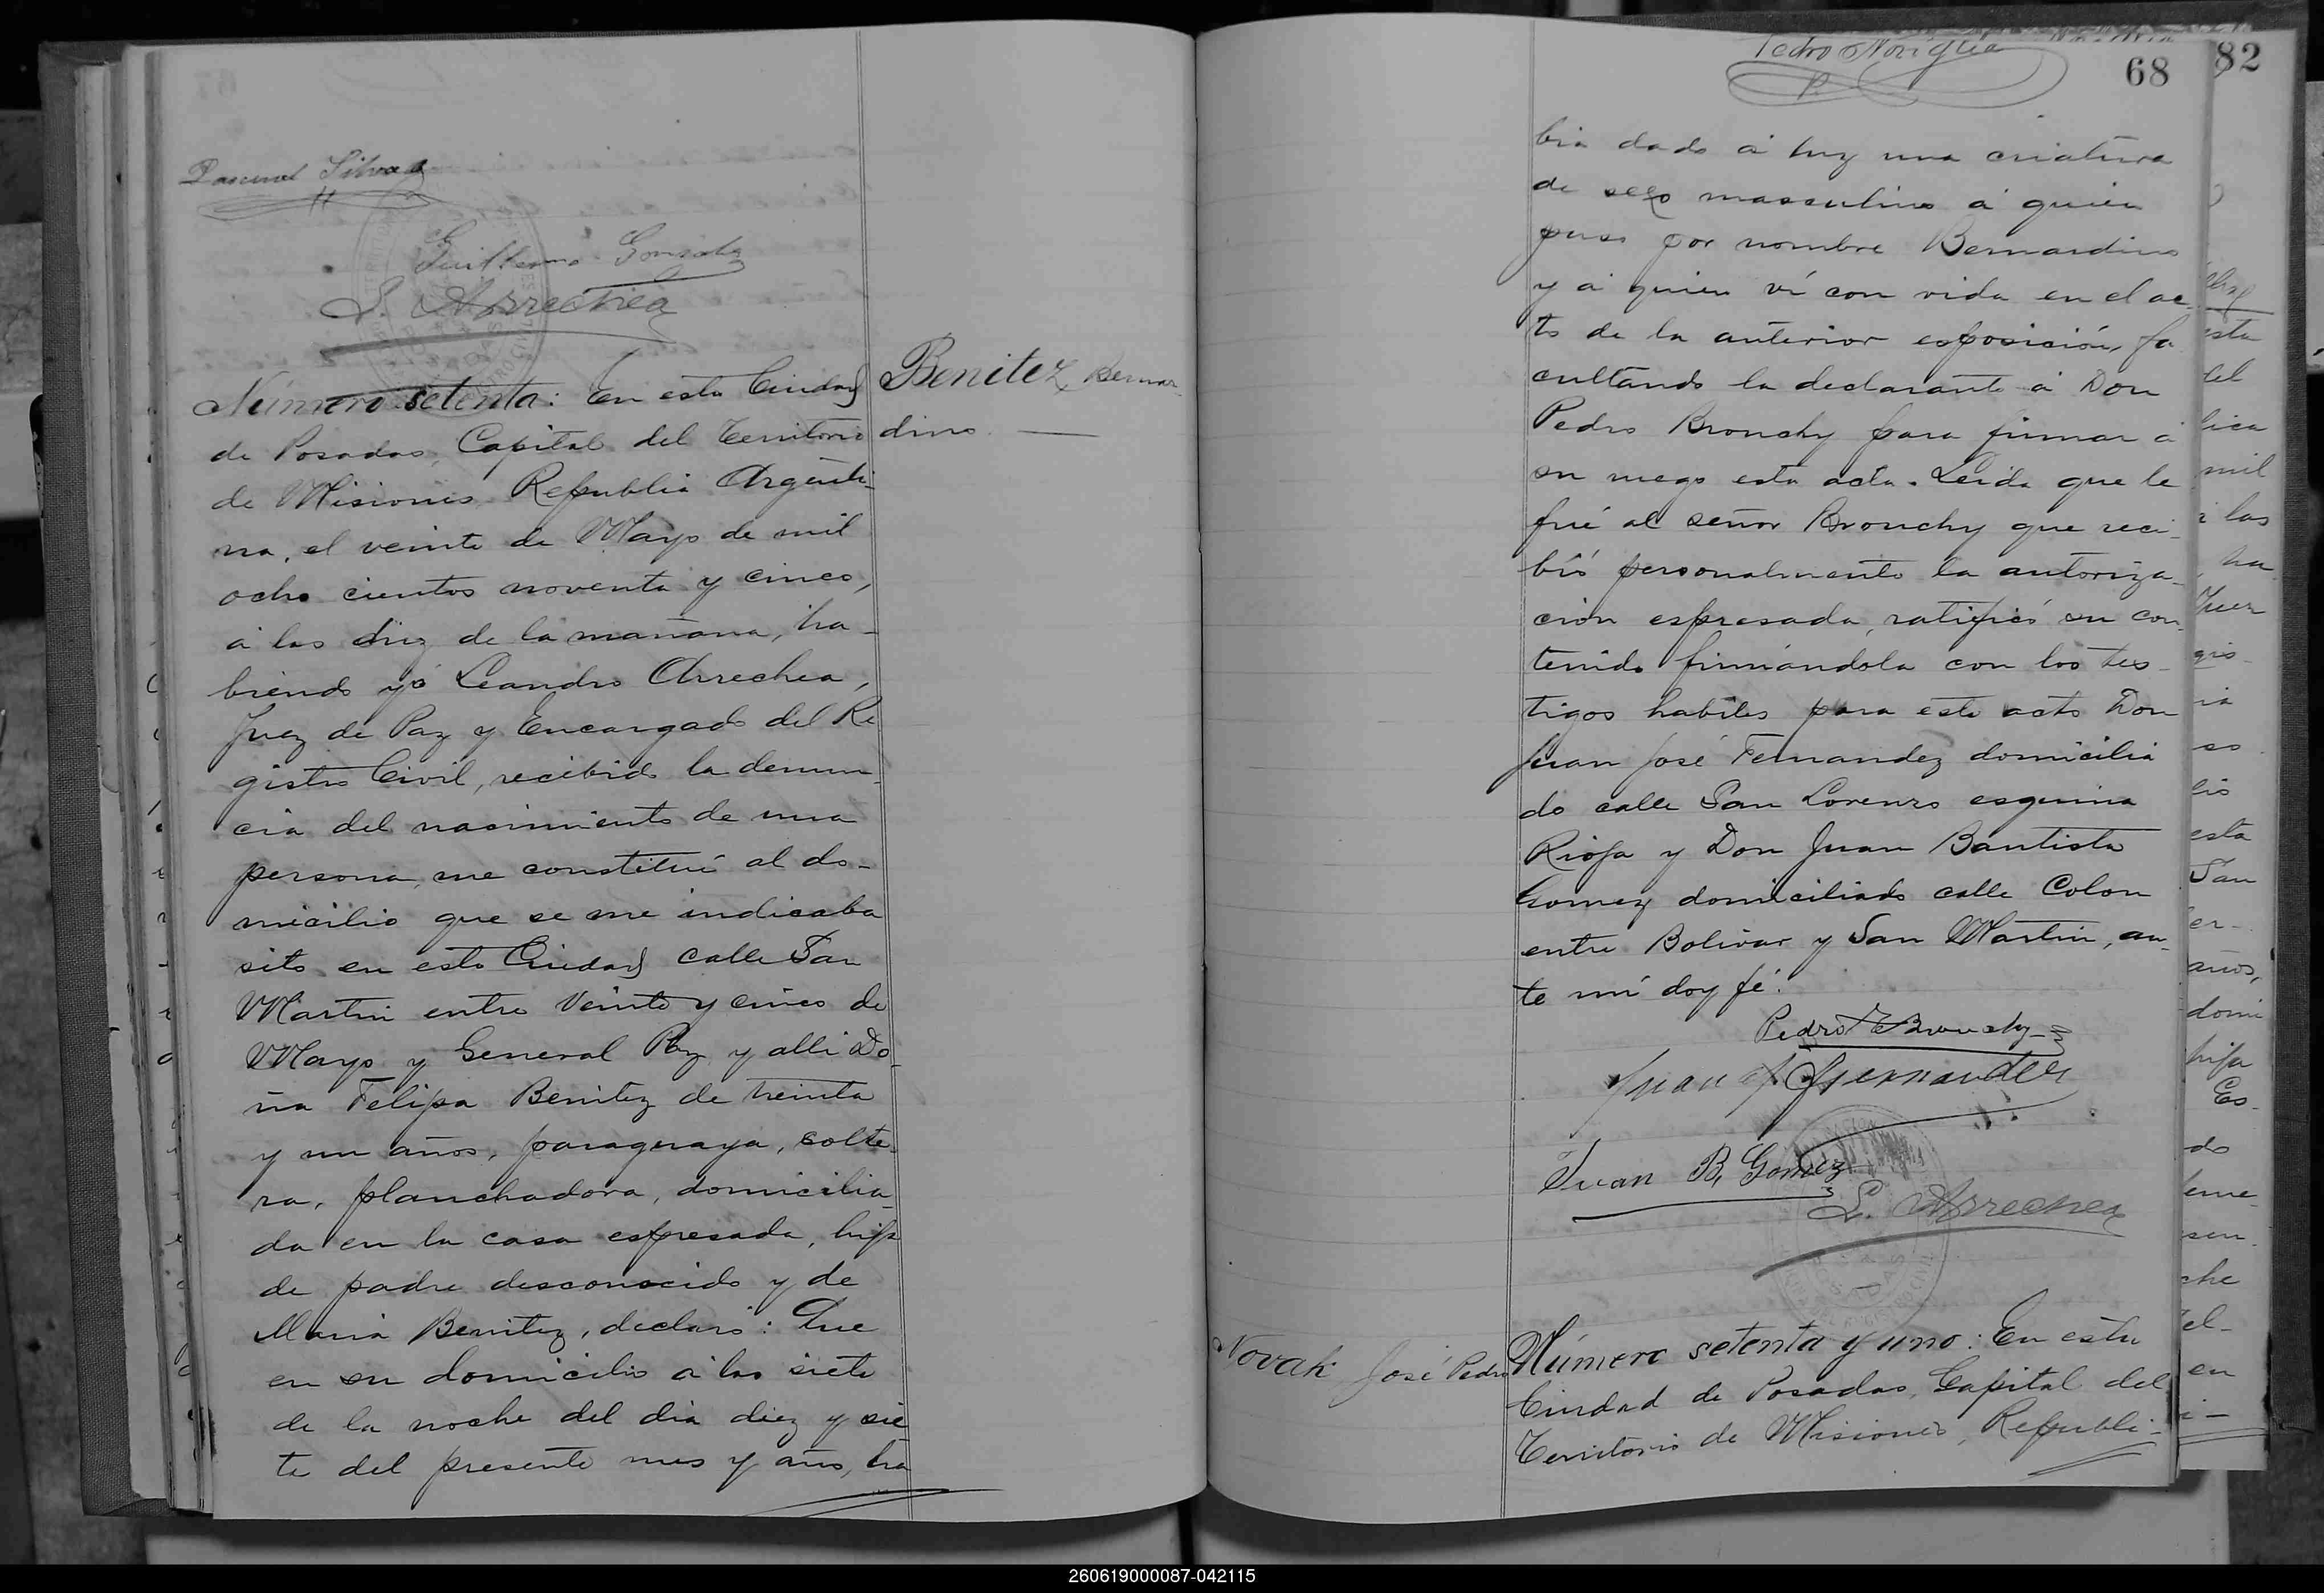 Pascual Silva
Guillermo Gonzalez
L. Arrechea
Benitez, Bernar-
dino
Número setenta: En esta Ciudad
de Posadas, Capital del Territorio
de Misiones Republica Argenti-
na, el veinte de Mayo de mil
ocho cientos noventa y cinco,
á las diez de la mañana, ha-
biendo yó Leandro Arrechea,
Juez de Paz y Encargado del Re
gistro Civil, recibido la denun-
cia del nasimiento de una
persona, me constituí al do-
micilio que se me indicaba
sito en esta Ciudad calle San
Martin entre Veinte y cinco de
Mayo y General Paz y alli Do-
ña Felipa Benitez de treinta
y un años, paraguaya, solte-
ra, planchadora, domicilia-
da en la casa espresada, hija
de padre desconocido y de
Maria Benitez, declaró: Que
en su domicilio á las siete
de la noche del dia diez y sie
te del presente mes y año, ha
Pedro Noriega
68
82
bia dado á luz una criatura
de sexo masculino á quien
puso por nombre Bernardino
y á quien ví con vida en el ac-
to de la anterior esposición, fa
cultando la declarante á Don
Pedro Bronchy para firmar á
su ruego esta acta. Leida que le
fué al señor Bronchy que reci-
bió personalmente la autoriza-
ción espresada, ratificó su con-
tenido firmándola con los tes-
tigos habiles para este acto Don
Juan José Fernandez domicilia
do calle San Lorenzo esquina
Rioja y Don Juan Bautista
Gomez domiciliado calle Colon
entre Bolivar y San Martin, an-
te mí doy fé.
Pedro Bronchy
Juan J. Fernandez
Juan B. Gomez
L. Arrechea
Novak José Pedro
Número setenta y uno: En esta
Ciudad de Posadas, Capital del
Territorio de Misiones, Republi-
260619000087-042115